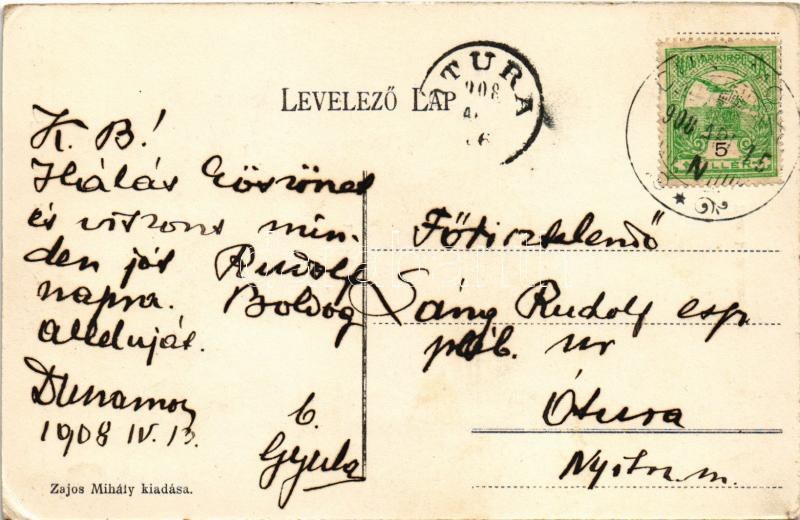 LEVELEZŐ LAP
ÓTURA
908
K. B!
Hálás köszönet
és viszont min-
den jót Rudolf
napra. Boldog
alleluját.
1908 IV. 13.
b.
Gyula
Főtisztelendő
Sány Rudolf esp.
pléb. úr
Ótura
Nyitra m.
908
5
Zajos Mihály kiadása.